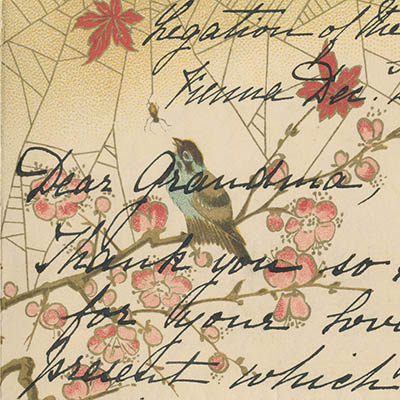 Legation of the
Vienna Dec.
Dear Grandma,
Thank you so
for your lov
present which